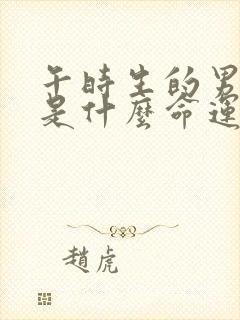 午時生的男
是什麼命運
趙虎